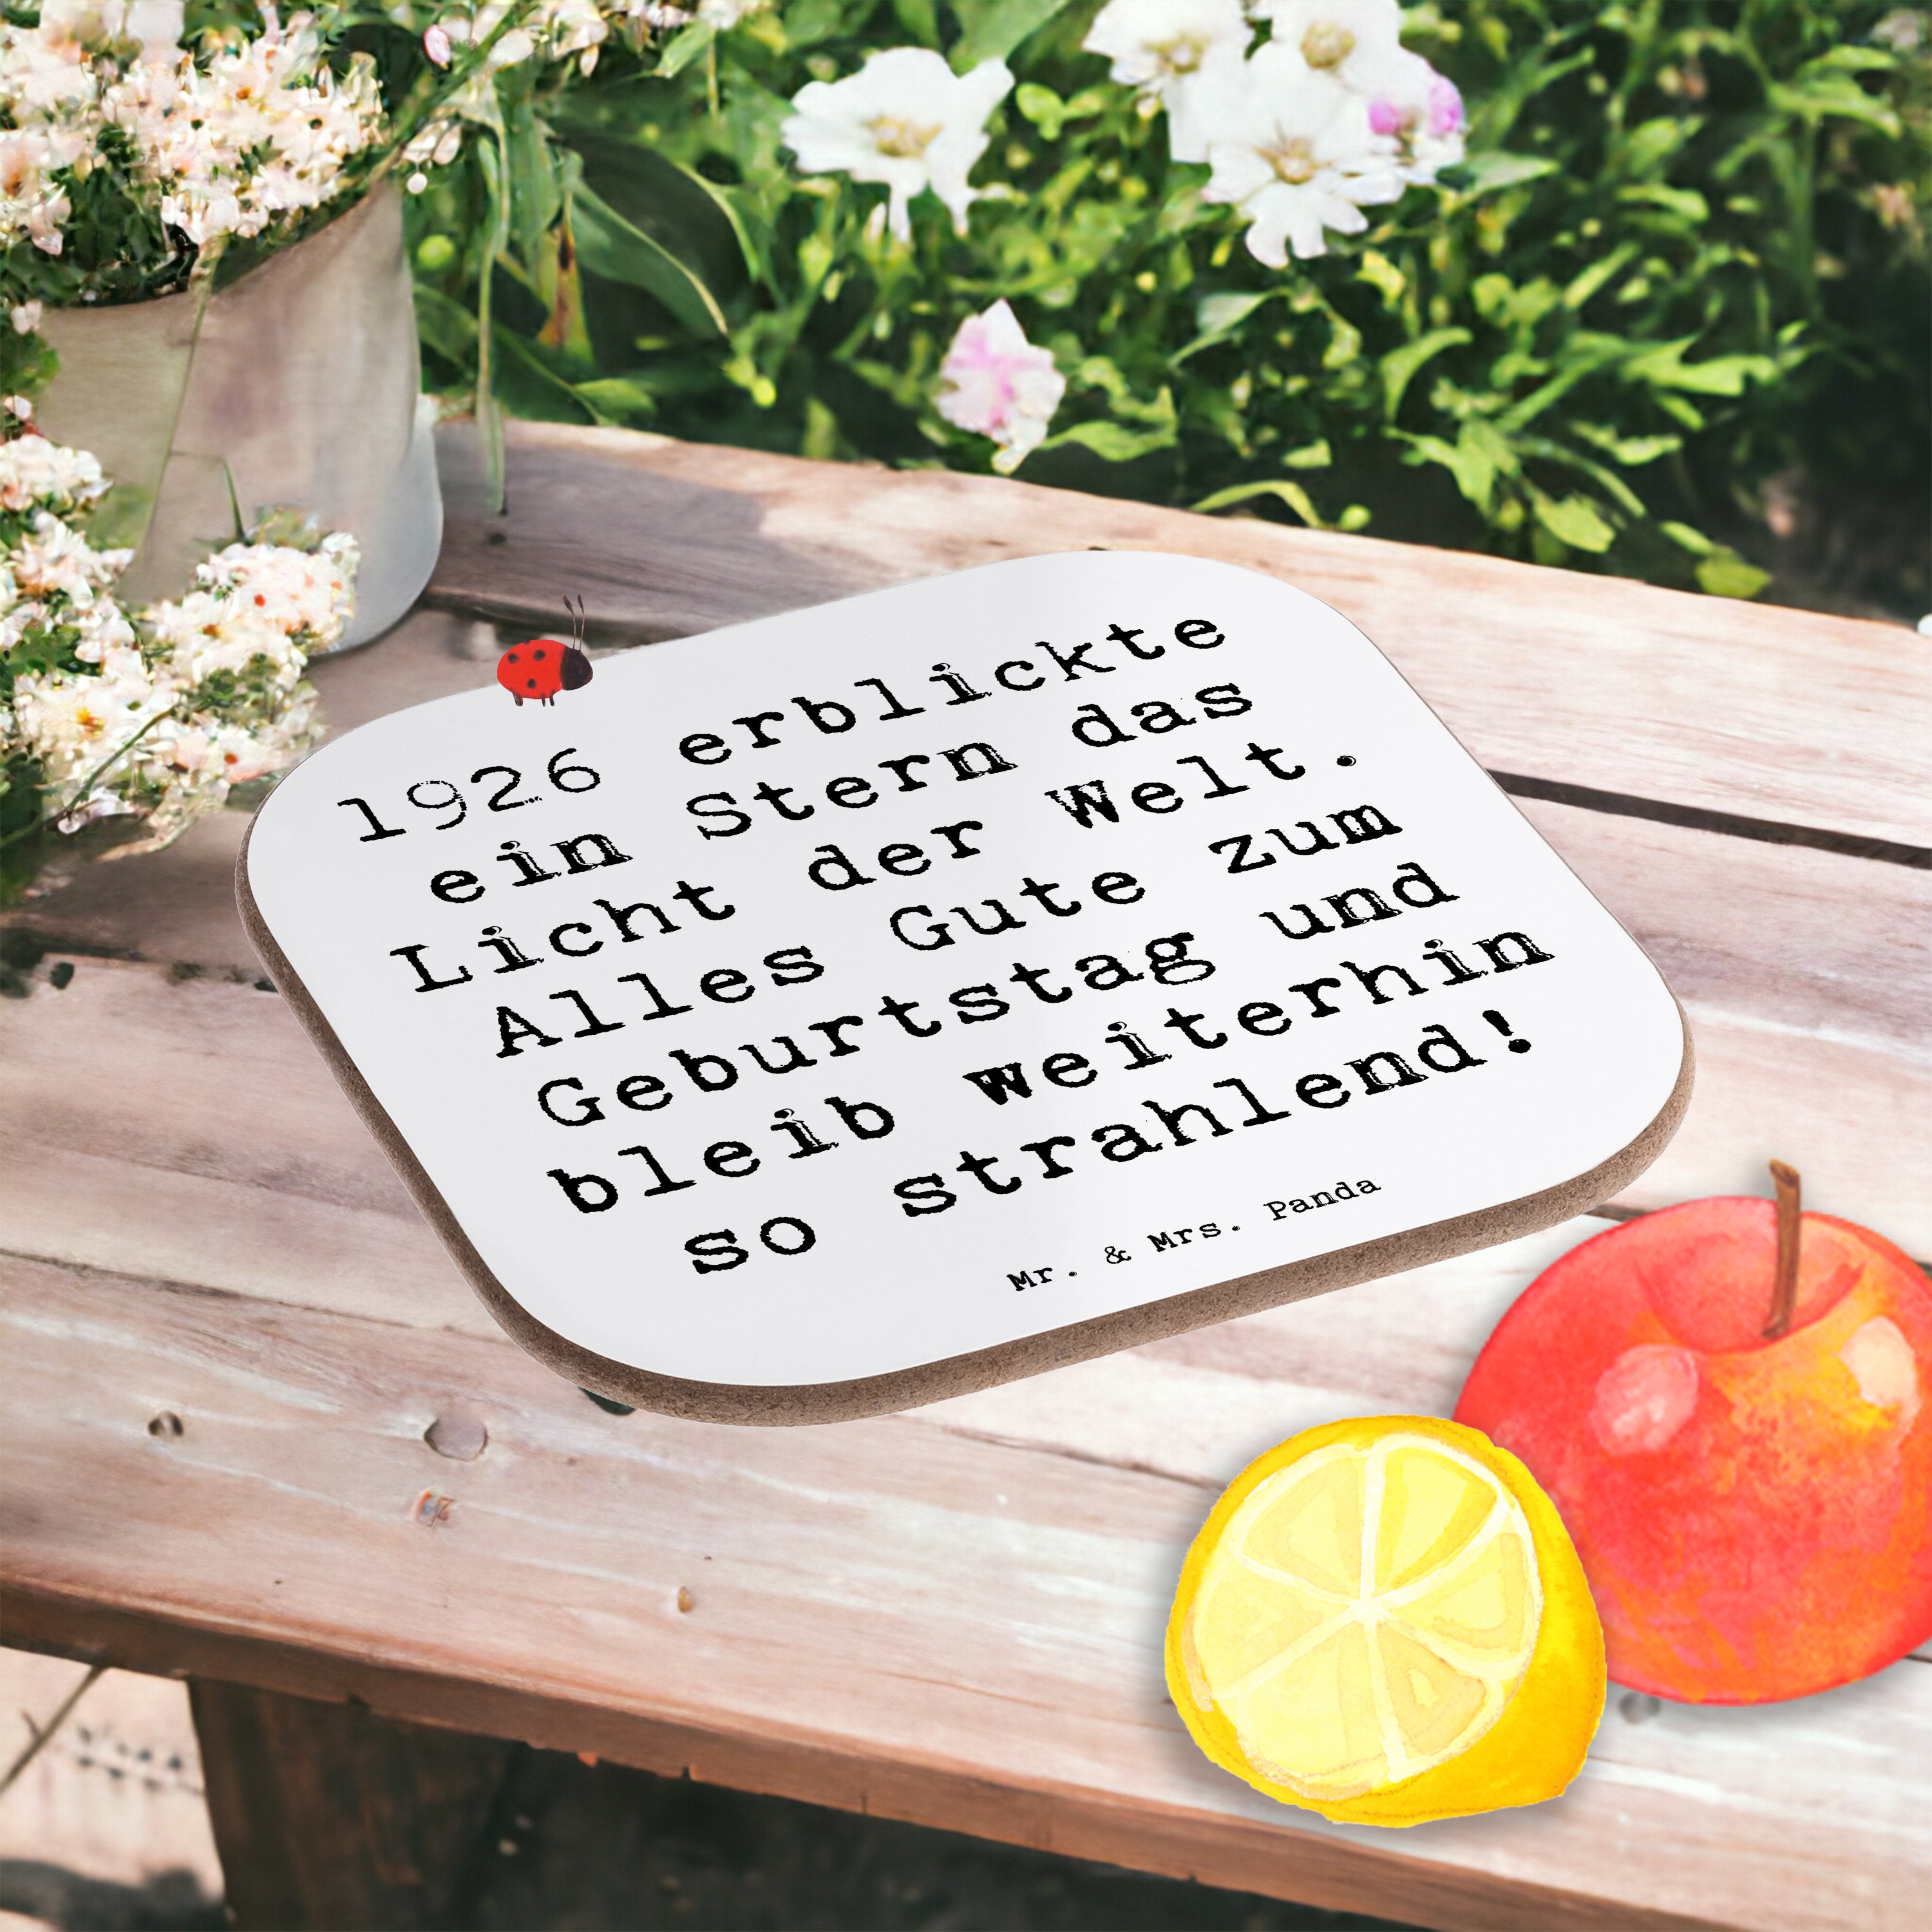 1926 erblickte
ein Stern das
Licht der Welt.
Alles Gute zum
Geburtstag und
bleib weiterhin
so strahlend!
Mr. & Mrs. Panda